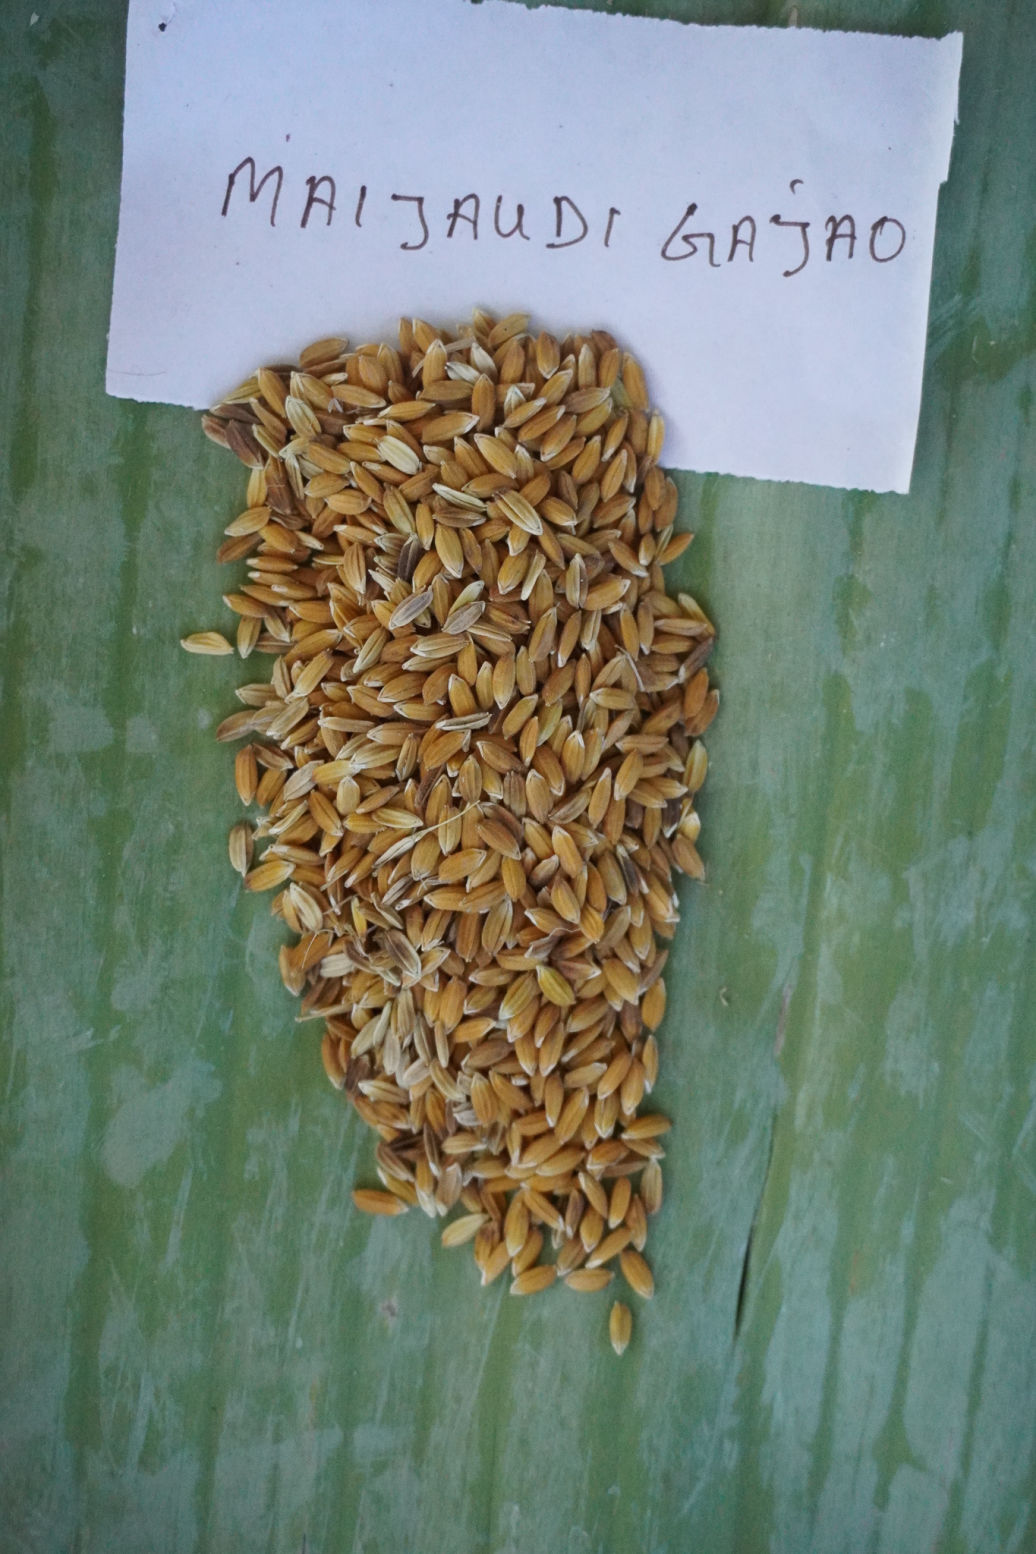 MAIJAUDI GAJAO